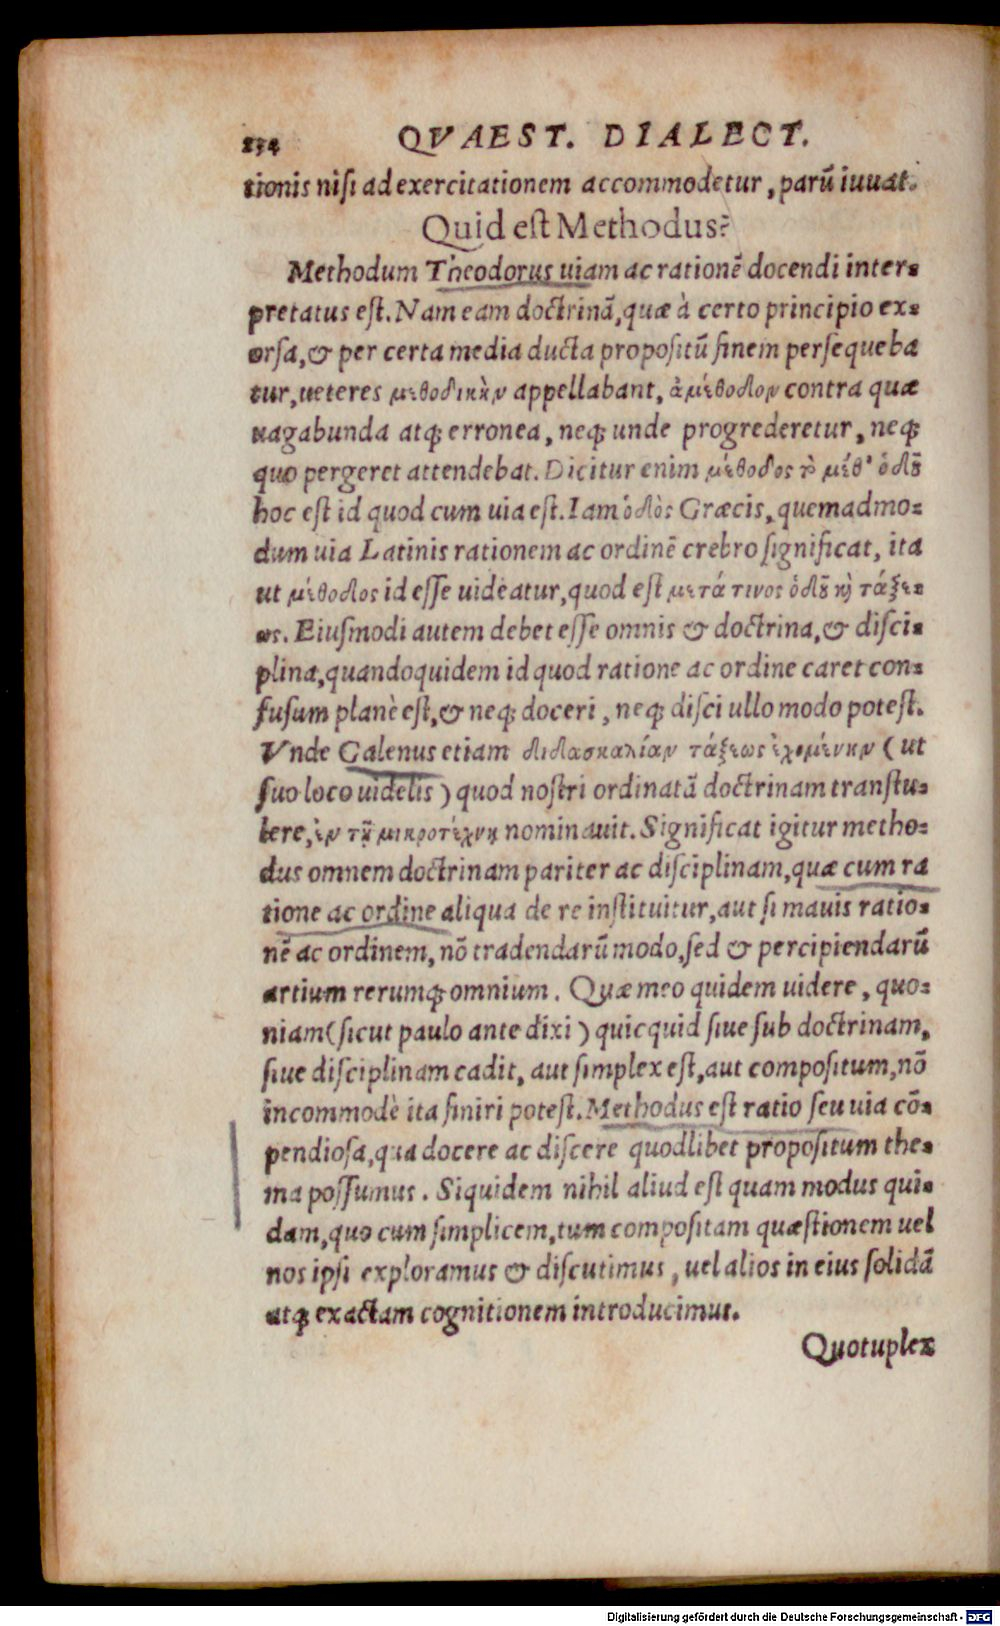 234 QVAEST. DIALECT.
tionis nisi ad exercitationem accommodetur, parū iuuat.
Quid est Methodus?
Methodum Theodorus uiam ac rationē docendi inter=
pretatus est. Nam eam doctrinā, quæ à certo principio ex=
orsa, & per certa media ducta propositū finem persequeba
tur, ueteres μεθοδικὴν appellabant, ἀμέθοδον contra quæ
uagabunda atq; erronea, neq; unde progrederetur, neq;
quo pergeret attendebat. Dicitur enim μέθοδος τὸ μέθ' ὁδοῦ
hoc est id quod cum uia est. Iam ὁδὸς Græcis, quemadmo=
dum uia Latinis rationem ac ordinē crebro significat, ita
ut μέθοδος id esse uideatur, quod est μετά τινος ὁδοῦ καὶ τάξε=
ως. Eiusmodi autem debet esse omnis & doctrina, & disci=
plina, quandoquidem id quod ratione ac ordine caret con=
fusum planè est, & neq; doceri, neq; disci ullo modo potest.
Vnde Galenus etiam διδασκαλίαν τάξεως ἐχομένην (ut
suo loco uidelis) quod nostri ordinatā doctrinam transtu=
lere, ἐν τῇ μικροτέχνῃ nominauit. Significat igitur metho=
dus omnem doctrinam pariter ac disciplinam, quæ cum ra
tione ac ordine aliqua de re instituitur, aut si mauis ratio=
nē ac ordinem, nō tradendarū modo, sed & percipiendarū
artium rerumq; omnium. Quæ meo quidem uidere, quo=
niam (sicut paulo ante dixi) quicquid siue sub doctrinam,
siue disciplinam cadit, aut simplex est, aut compositum, nō
incommodè ita finiri potest. Methodus est ratio seu uia cō=
pendiosa, qua docere ac discere quodlibet propositum the=
ma possumus. Siquidem nihil aliud est quam modus qui=
dam, quo cum simplicem, tum compositam quæstionem uel
nos ipsi exploramus & discutimus, uel alios in eius solidā
atq; exactam cognitionem introducimus.
Quotuplex
Digitalisierung gefördert durch die Deutsche Forschungsgemeinschaft - DFG